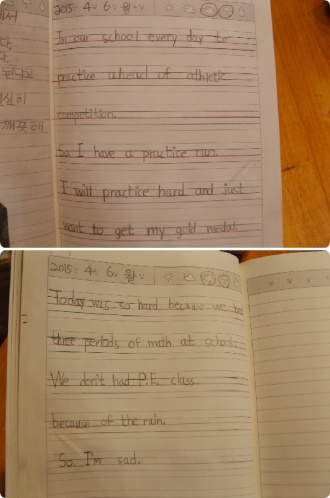 2015년 4월 6일 월요일
In our school every day to
practice ahead of athletic
competition.
So I have a practice run.
I will practice hard and just
want to get my gold medal.
2015년 4월 6일 월요일
Today was so hard because we had
three periods of math at school.
We don't had P.E. class
because of the rain.
So. I'm sad.